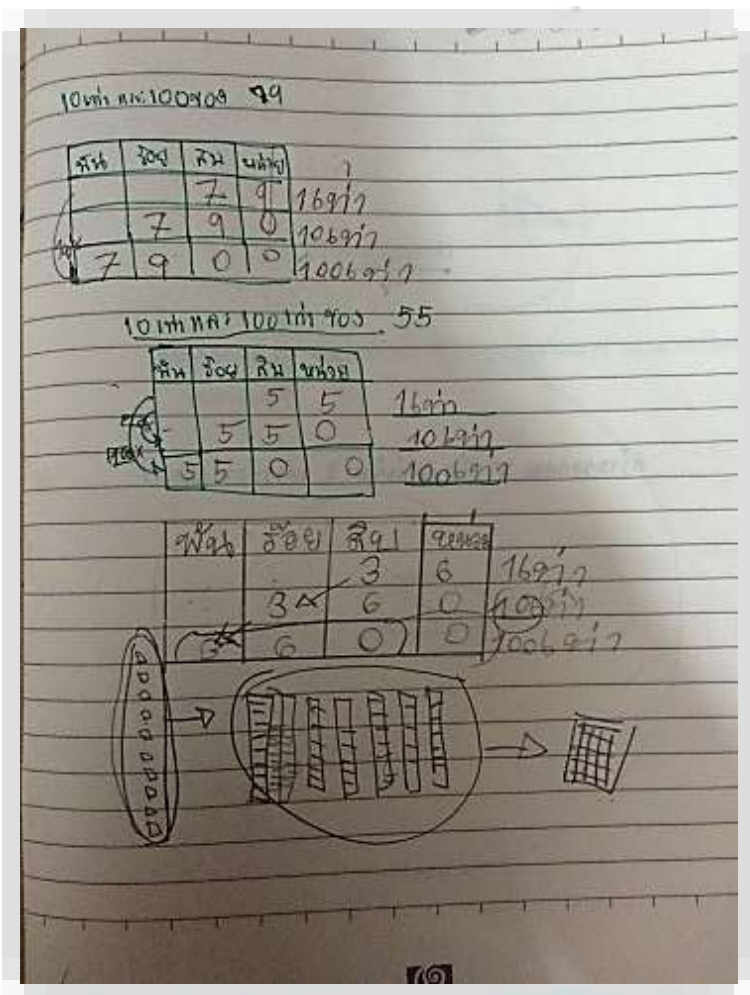 10เท่า และ 100ของ 79
พัน ร้อย สิบ หน่วย
7 9 1เท่า
7 9 0 10เท่า
7 9 0 0 100เท่า
10เท่า และ 100เท่า ของ 55
พัน ร้อย สิบ หน่วย
5 5 1เท่า
5 5 0 10เท่า
5 5 0 0 100เท่า
พัน ร้อย สิบ หน่วย
3 6 1เท่า
3 6 0 10เท่า
6 0 0 100เท่า